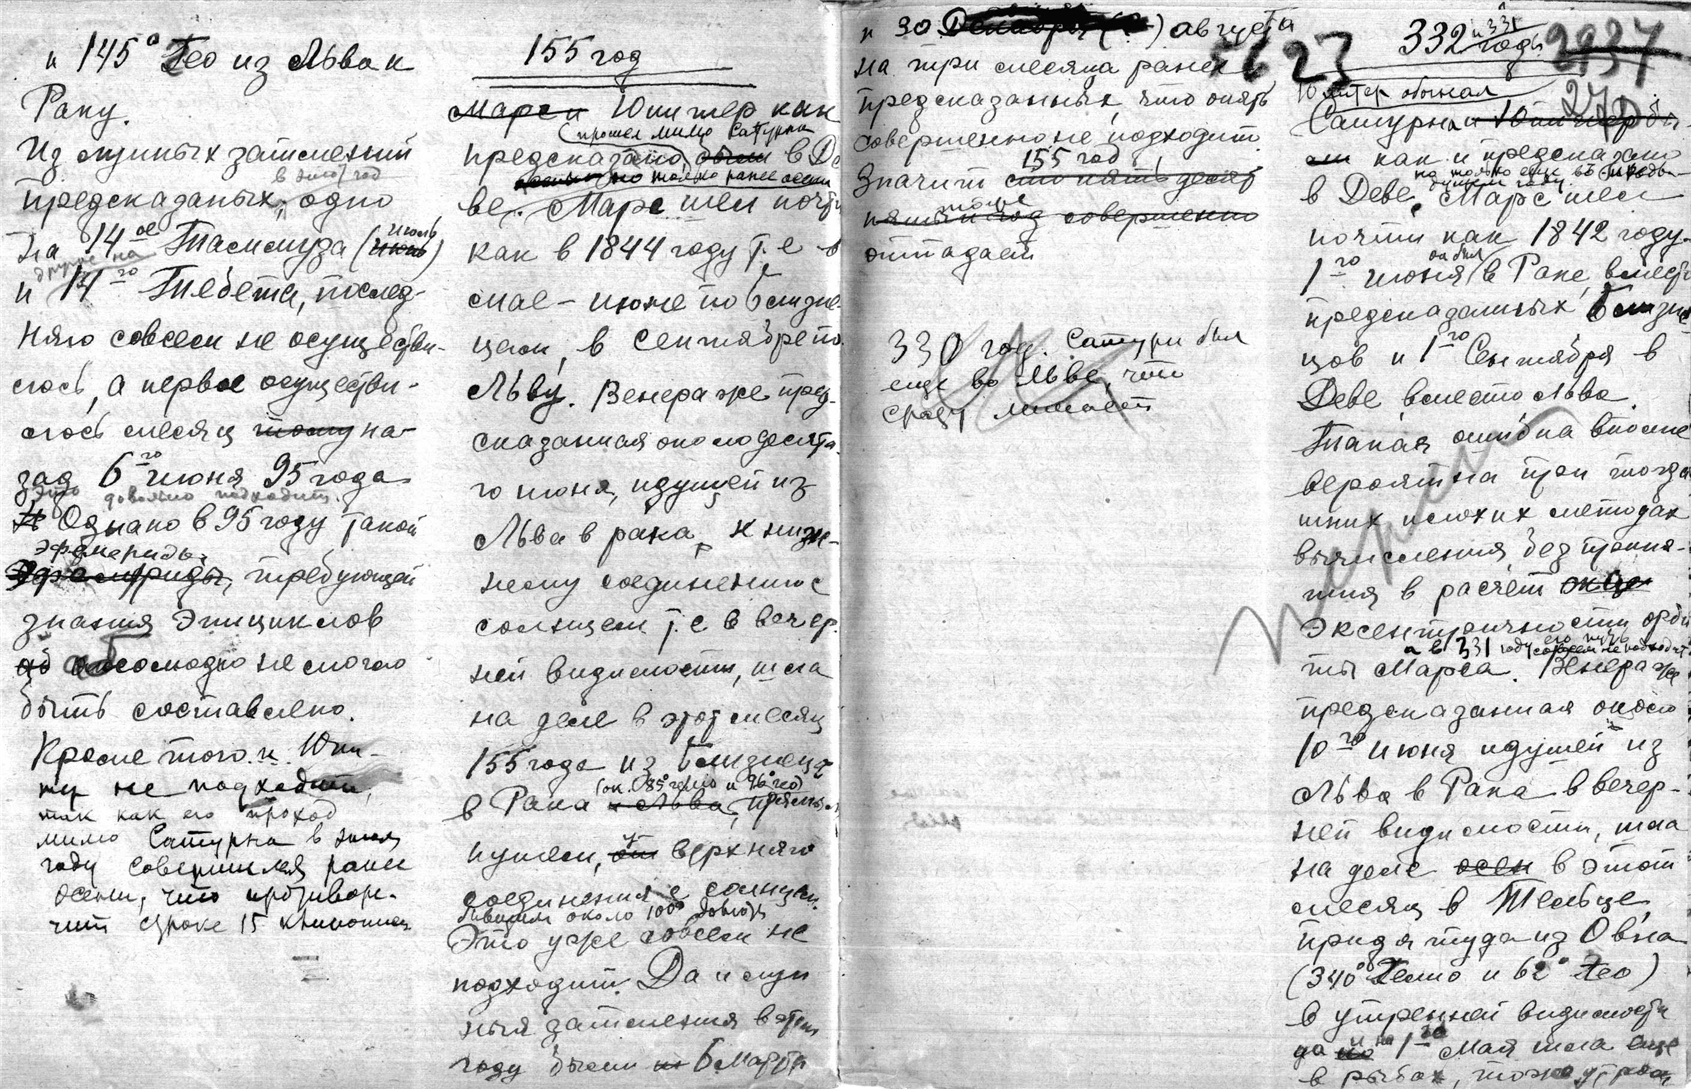 и 145° Гео из Льва к
Раку.
Из лунных затмений
в этот год
предсказаных, одно
на 14ое Таммуза (июнь) июль
другое на
и 14го Тебета, послед-
няго совсем не осуществи-
лось, а первое осуществи-
лось месяц тому на-
зад 6го июня 95 года
Это довольно подходит.
Однако в 95 году такой
эфемериды,
Эфемериды, требующей
знания Эпициклов
аб абсолюдно не могло
быть составлено.
Кроме того и Юпи-
тер не подходит,
так как его проход
мимо Сатурна в этом
году совершился ранее
осени, что противоре-
чит строке 15 клинописи
155 год
Марс и Юпитер как
(прошел мимо Сатурна
предсказано были в Де
но только ранее осени
ве. Марс шел почти
как в 1844 году т.е в
мае – июне по Близне
цам, в Сентябре по
Льву. Венера же пред-
сказанная около десята-
го июня, идущей из
Льва в рака, к ниж-
нему соединению с
солнцем т.е в вечер.
ней видимости, шла
на деле в этот месяц
155 года из Близнеца
(ок. 85° гелио и 96° гео)
в Рака и Льва, прямым
путем, от верхняго
соединения с солнцем.
около 100° долготы
Это уже совсем не
подходит. Да и лун
ныя затмения в этом
году были 6 Марта
и 30 Декабря августа
на три месяца ранее
предсказанных, что опять
совершенно не подходит
155 год
Значит сто пять десят
тоже
пятый год совершенно
отпадает
330 год. Сатурн был
еще во Льве, что
сразу
5623
332 и 331 годы
2937
270
Юпитер обычная
Сатурн и Юпитер бы-
ли как и предсказано
но только еще в преды-
дущем году.
в Деве, Марс шел
почти как 1842 году.
он был
1го июня в Раке, вместо
предсказанных Близне
цов и 1го Сентября в
Деве вместо Льва.
Такая ошибка вполне
вероятна при тогда
шних плохих методах
вычисления, без приня-
тия в расчет экце
эксентричности орби
а в 331 году его путь совсем не подходит
ты Марса. Венера же
предсказанная около
10го июня идущей из
Льва в Рака в вечер-
ней видимости, шла
на деле осен в этот
месяц в Тельце,
придя туда из Овна
(340° Гелио и 62° Гео)
в утренней видимости
да и на 1го Мая шла еще
в рыбах, тоже утром